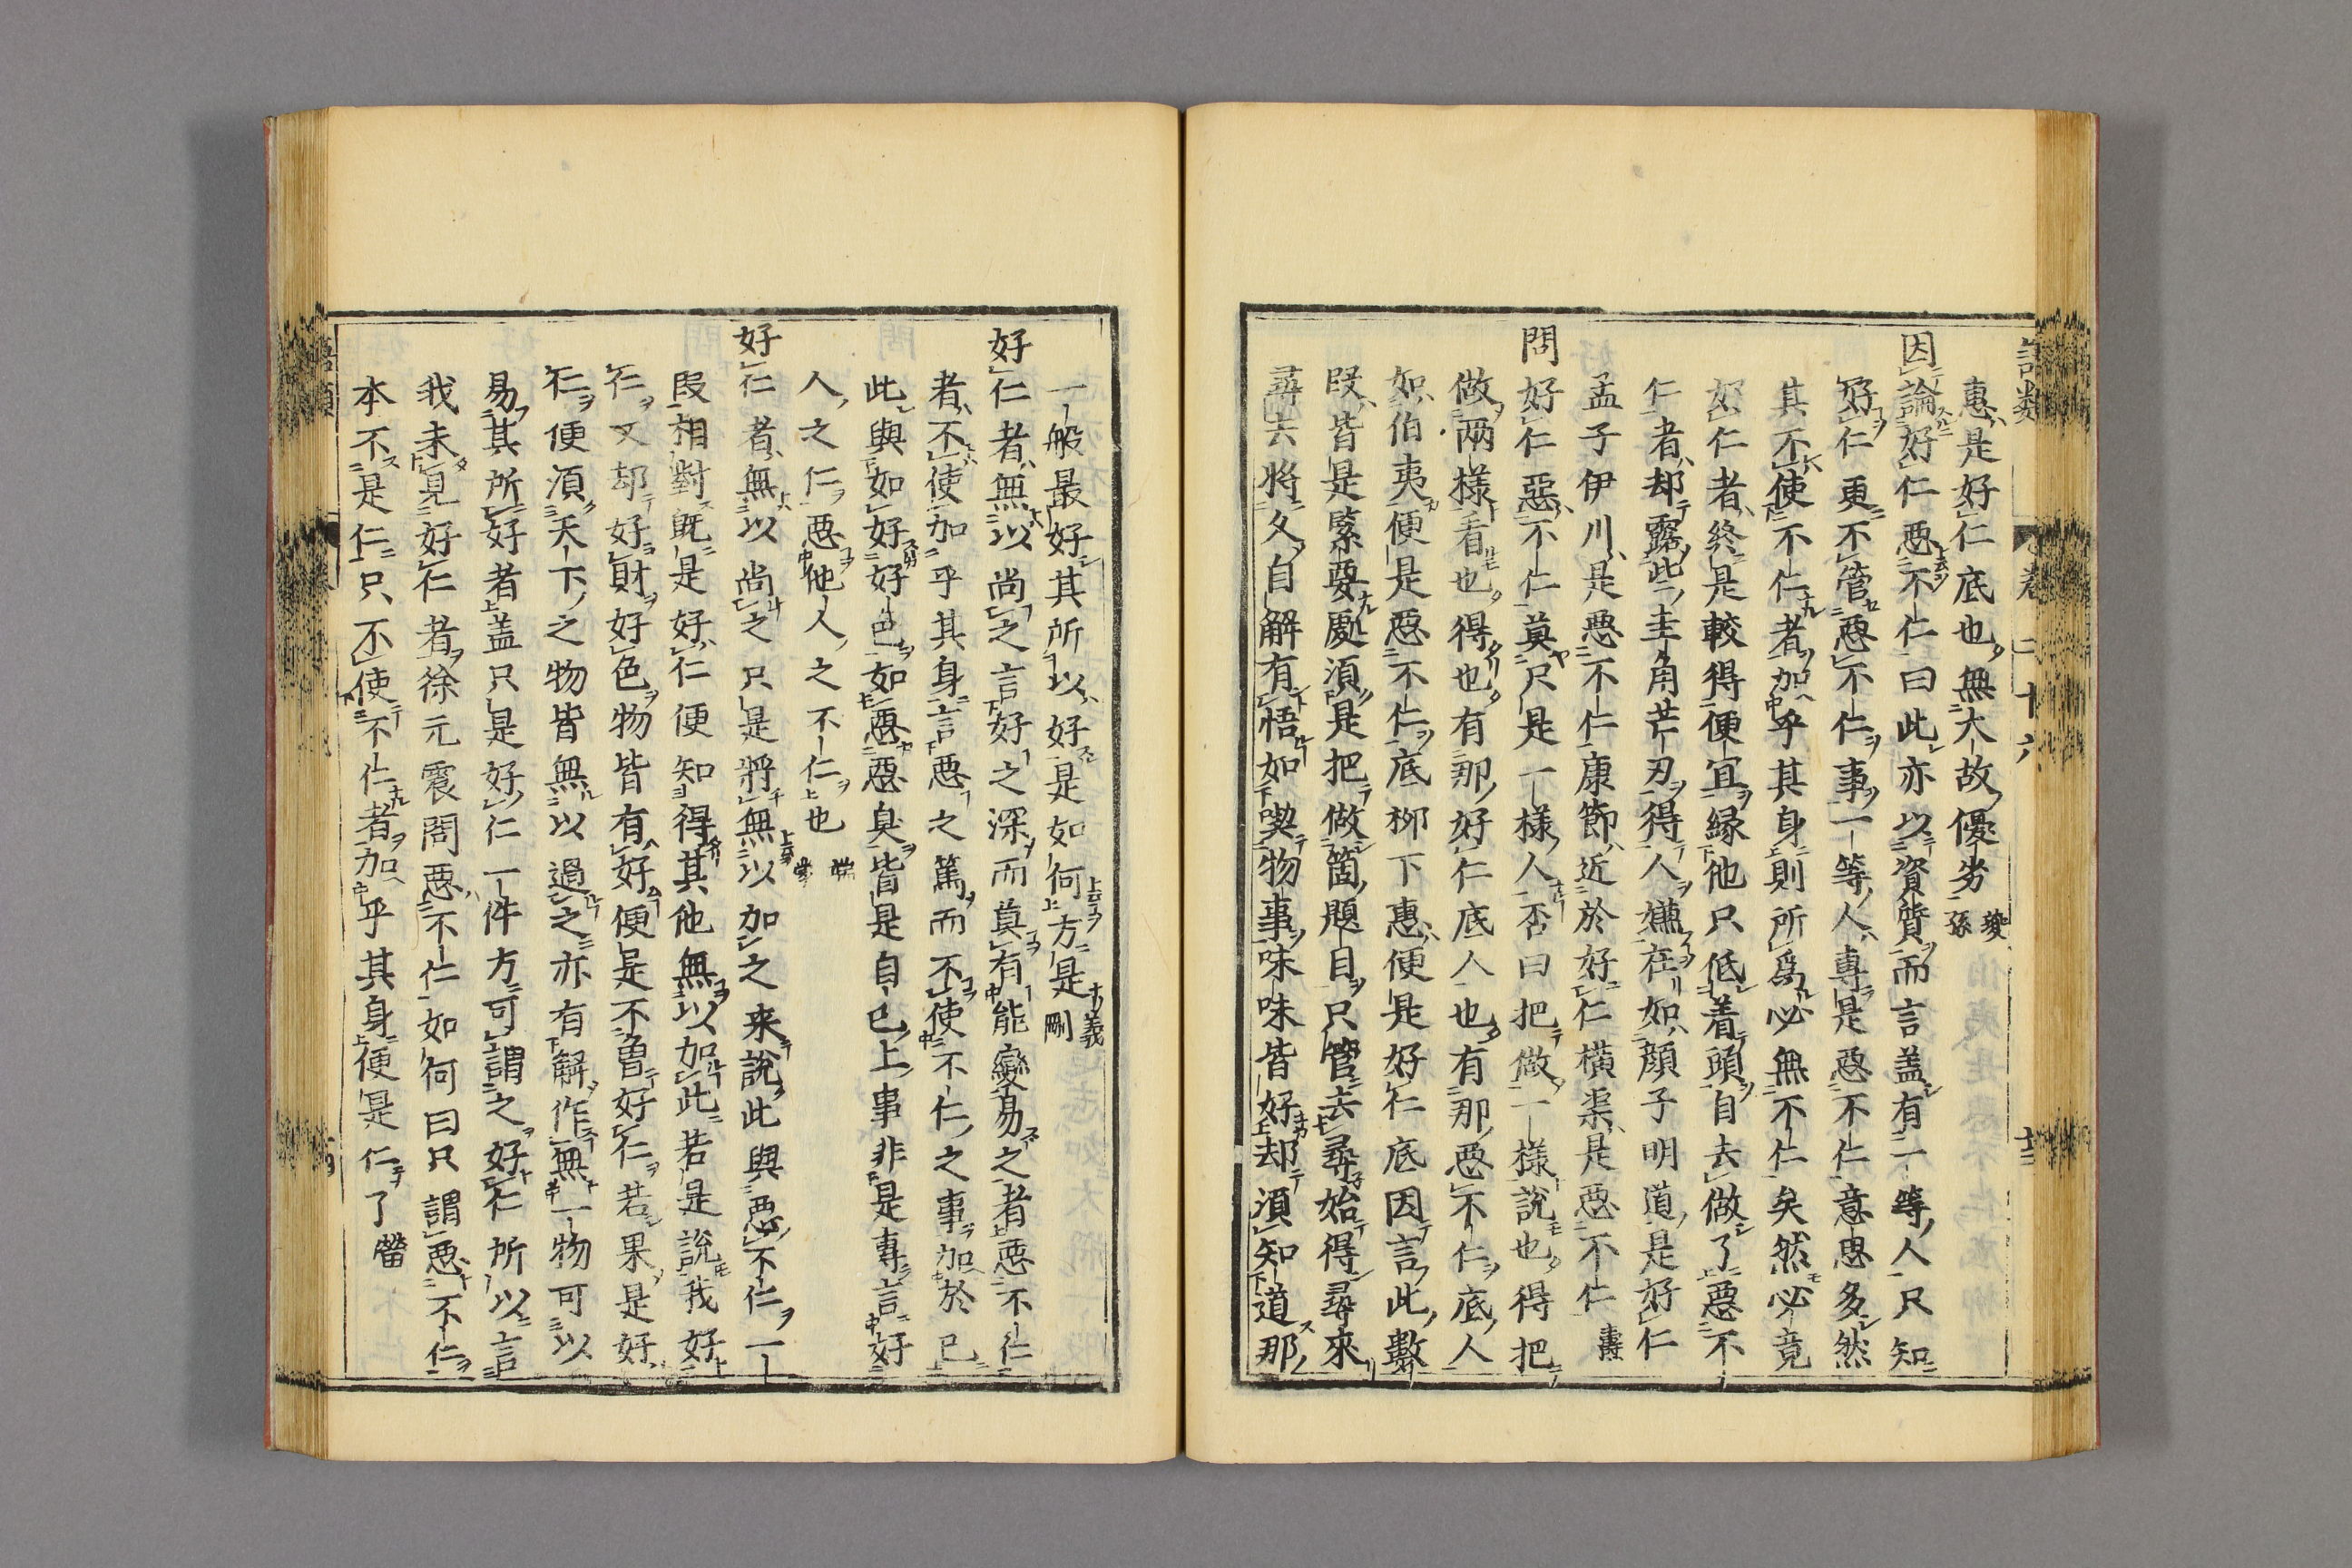 惠是好仁底也無大故優劣 㽦孫
因論好仁惡不仁曰此亦以資質而言盖有一等人只知
好仁更不管惡不仁事一等人專是惡不仁意思多然
其不使不仁者加乎其身則所爲必無不仁矣然必竟
好仁者終是較得便宜緣他只低着頭自去做了惡不
仁者却露些圭角芒刃得人嫌在如顏子明道是好仁
孟子伊川是惡不仁康節近於好仁橫渠是惡不仁 壽
問好仁惡不仁莫只是一樣人否曰把做一樣說也得把
做兩樣看也得也有那好仁底人也有那惡不仁底人
如伯夷便是惡不仁底柳下惠便是好仁底因言此數
段皆是緊要處須是把做箇題目只管去尋始得尋來
尋去將久自解有悟如喫物事味味皆好却須知道那
一般最好其所以好是如何方是 義剛
好仁者無以尚之言好之深而莫有能變易之者惡不仁
者不使加乎其身言惡之篤而不使不仁之事加於已
此與如好好色如惡惡臭皆是自已上事非是專言好
人之仁惡他人之不仁也 端蒙
好仁者無以尚之只是將無以加之来說此與惡不仁一
段相對既是好仁便知得其他無以加此若是說我好
仁又却好財好色物皆有好便是不曽好仁若果是好
仁便須天下之物皆無以過之亦有解作無一物可以
易其所好者盖只是好仁一件方可謂之好仁所以言
我未見好仁者徐元震問惡不仁如何曰只謂惡不仁
本不是仁只不使不仁者加乎其身便是仁了 㽦